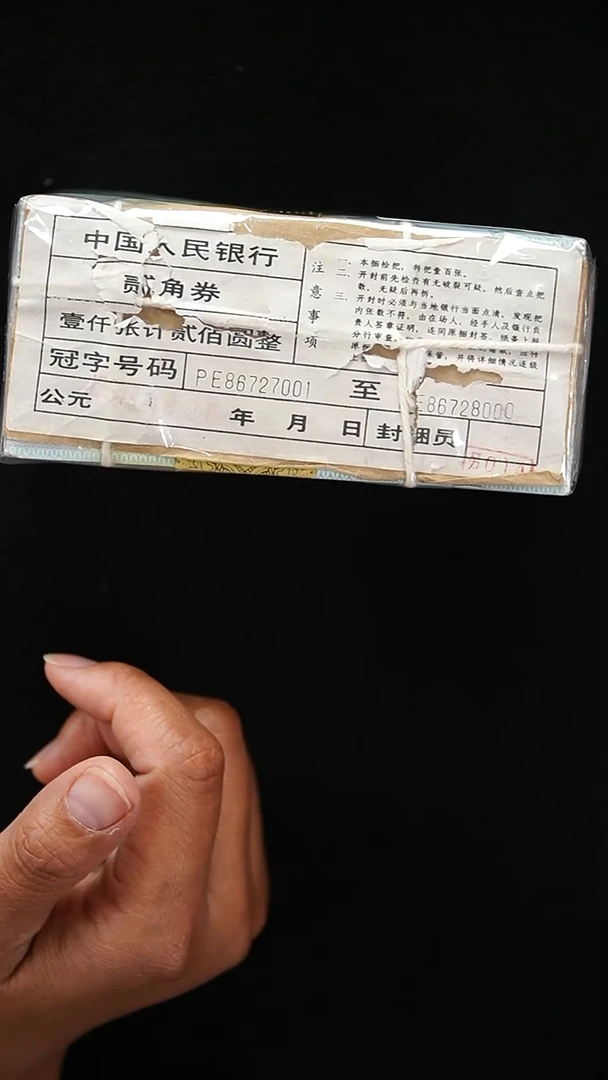 中国人民银行
贰角券
壹仟张计贰佰圆整
冠字号码 PE86727001 至 E86728000
公元 年 月 日 封捆员
注意事项
一、本捆拾把,每把壹百张。
二、开封前先检查有无破裂可疑,然后查点把
数,无疑后再拆。
三、开封时必须与当地银行当面点清,发现把
内张数不符,由在场人、经手人及银行负
责人签章证明,连同原捆封签、纸条上报
分行审查。
保管,并将详细情况逐级